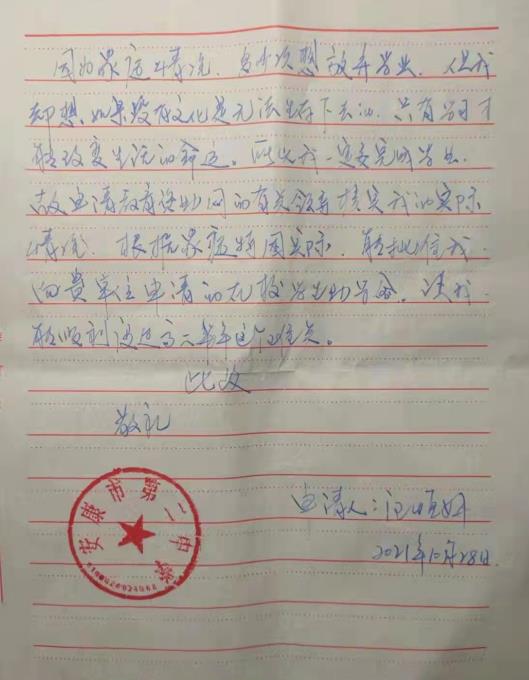 因为家庭情况，多少次想放弃学业，但我
却想，如果没有文化是无法生存下去的，只有学习才
能改变生活的命运。所以我一定要完成学业。
故申请教育资助网的有关领导核实我的实际
情况，根据家庭特困实际，能批准我
向贵单位申请的在校学生助学金，让我
能顺利渡过高二半年这个难关。
此致
敬礼
申请人：汪
2021年10月28日
安康市第二中学